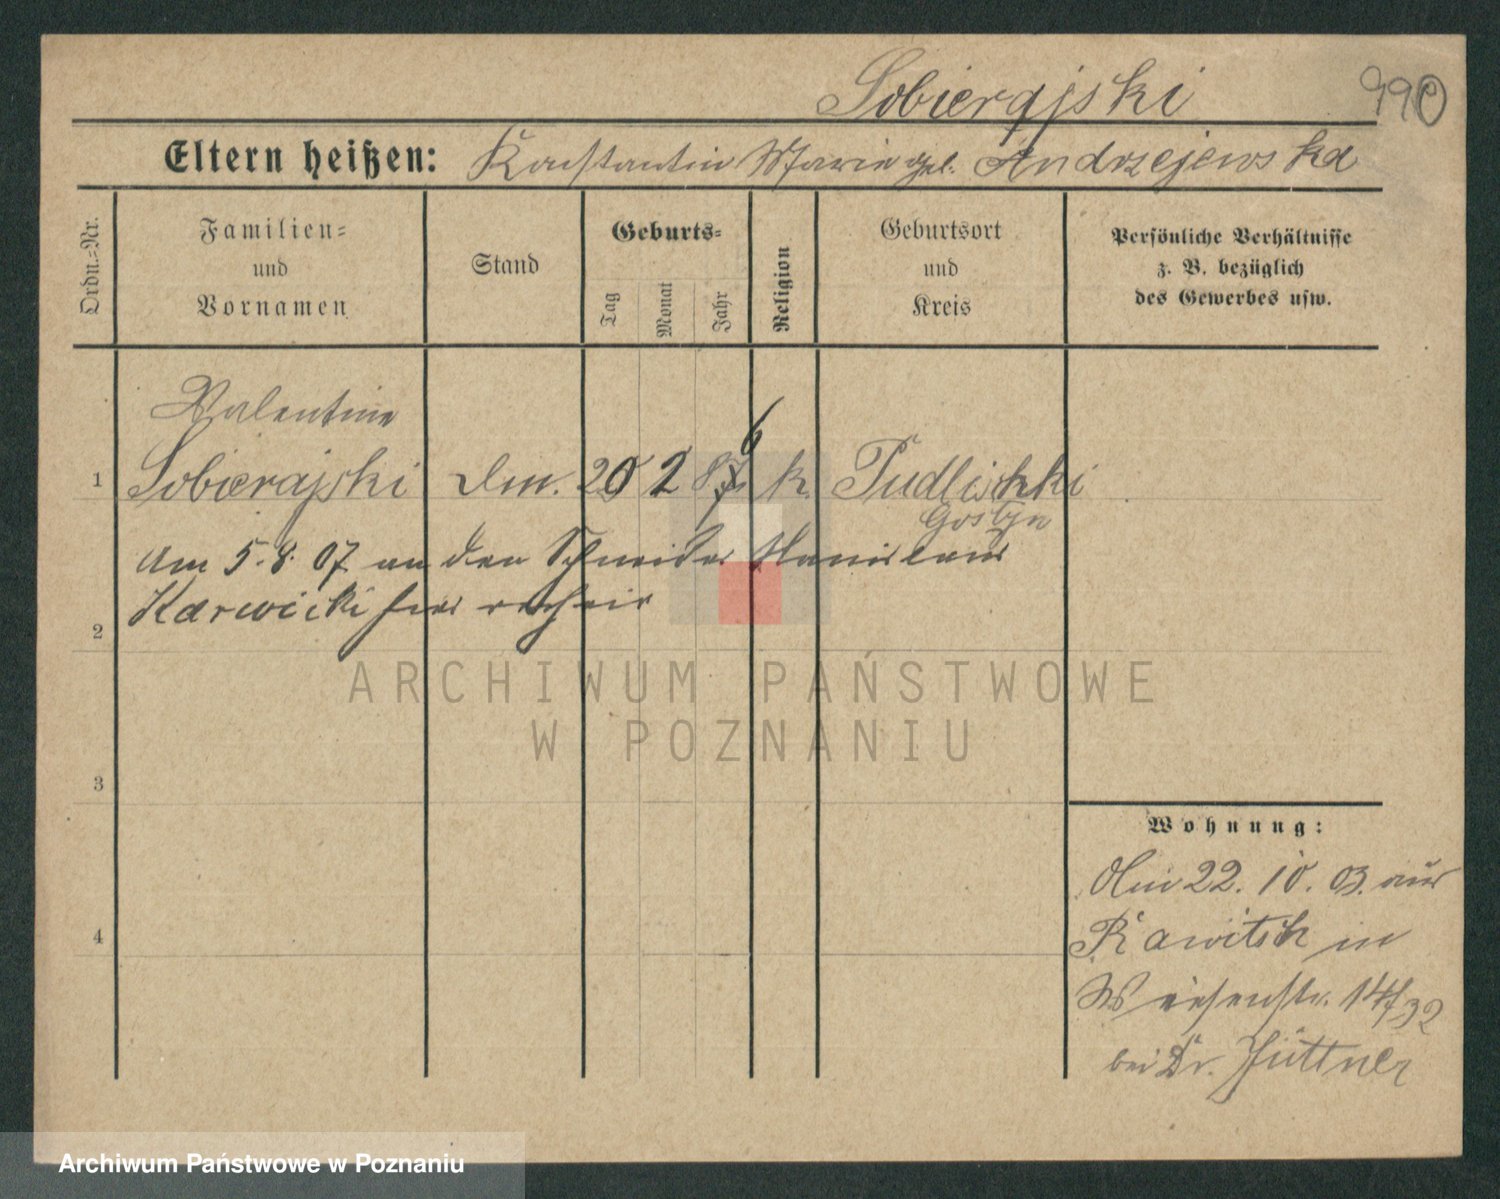 Sobierajski
990
Eltern heißen: Konstantin Marie geb. Andrzejewska
Ordn.-Nr.
Familien-
und
Vornamen
Stand
Geburts-
Tag
Monat
Jahr
Religion
Geburtsort
und
Kreis
Persönliche Verhältnisse
z. B. bezüglich
des Gewerbes usw.
Valentine
1 Sobierajski Dm. 20 2 87 6 k. Pudlischki
Gostyn
Am 5. 8. 07 an den Schneider Stanislaus
Karwicki hier verheir
2
3
4
Wohnung:
Am 22. 10. 03. aus
Rawitsch in
Wiesenstr. 14/32
bei Dr. Jüttner
ARCHIWUM PAŃSTWOWE
W POZNANIU
Archiwum Państwowe w Poznaniu